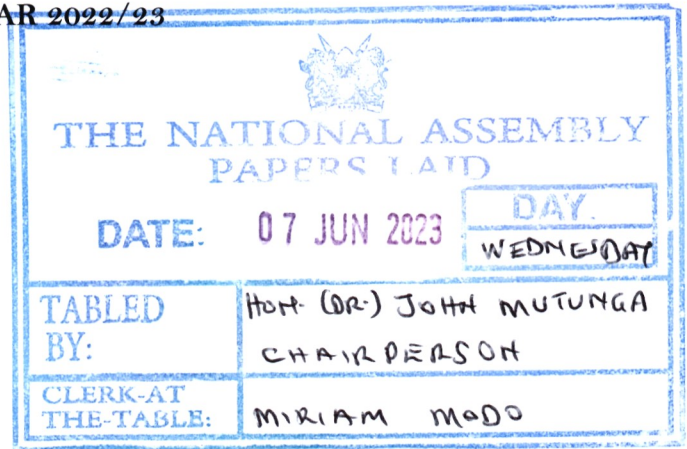 AR 2022/23
THE NATIONAL ASSEMBLY
PAPERS LAID
DATE: 07 JUN 2023
DAY.
WEDNESDAY
TABLED BY:
HON. (DR.) JOHN MUTUNGA
CHAIRPERSON
CLERK-AT THE-TABLE:
MIRIAM MODO